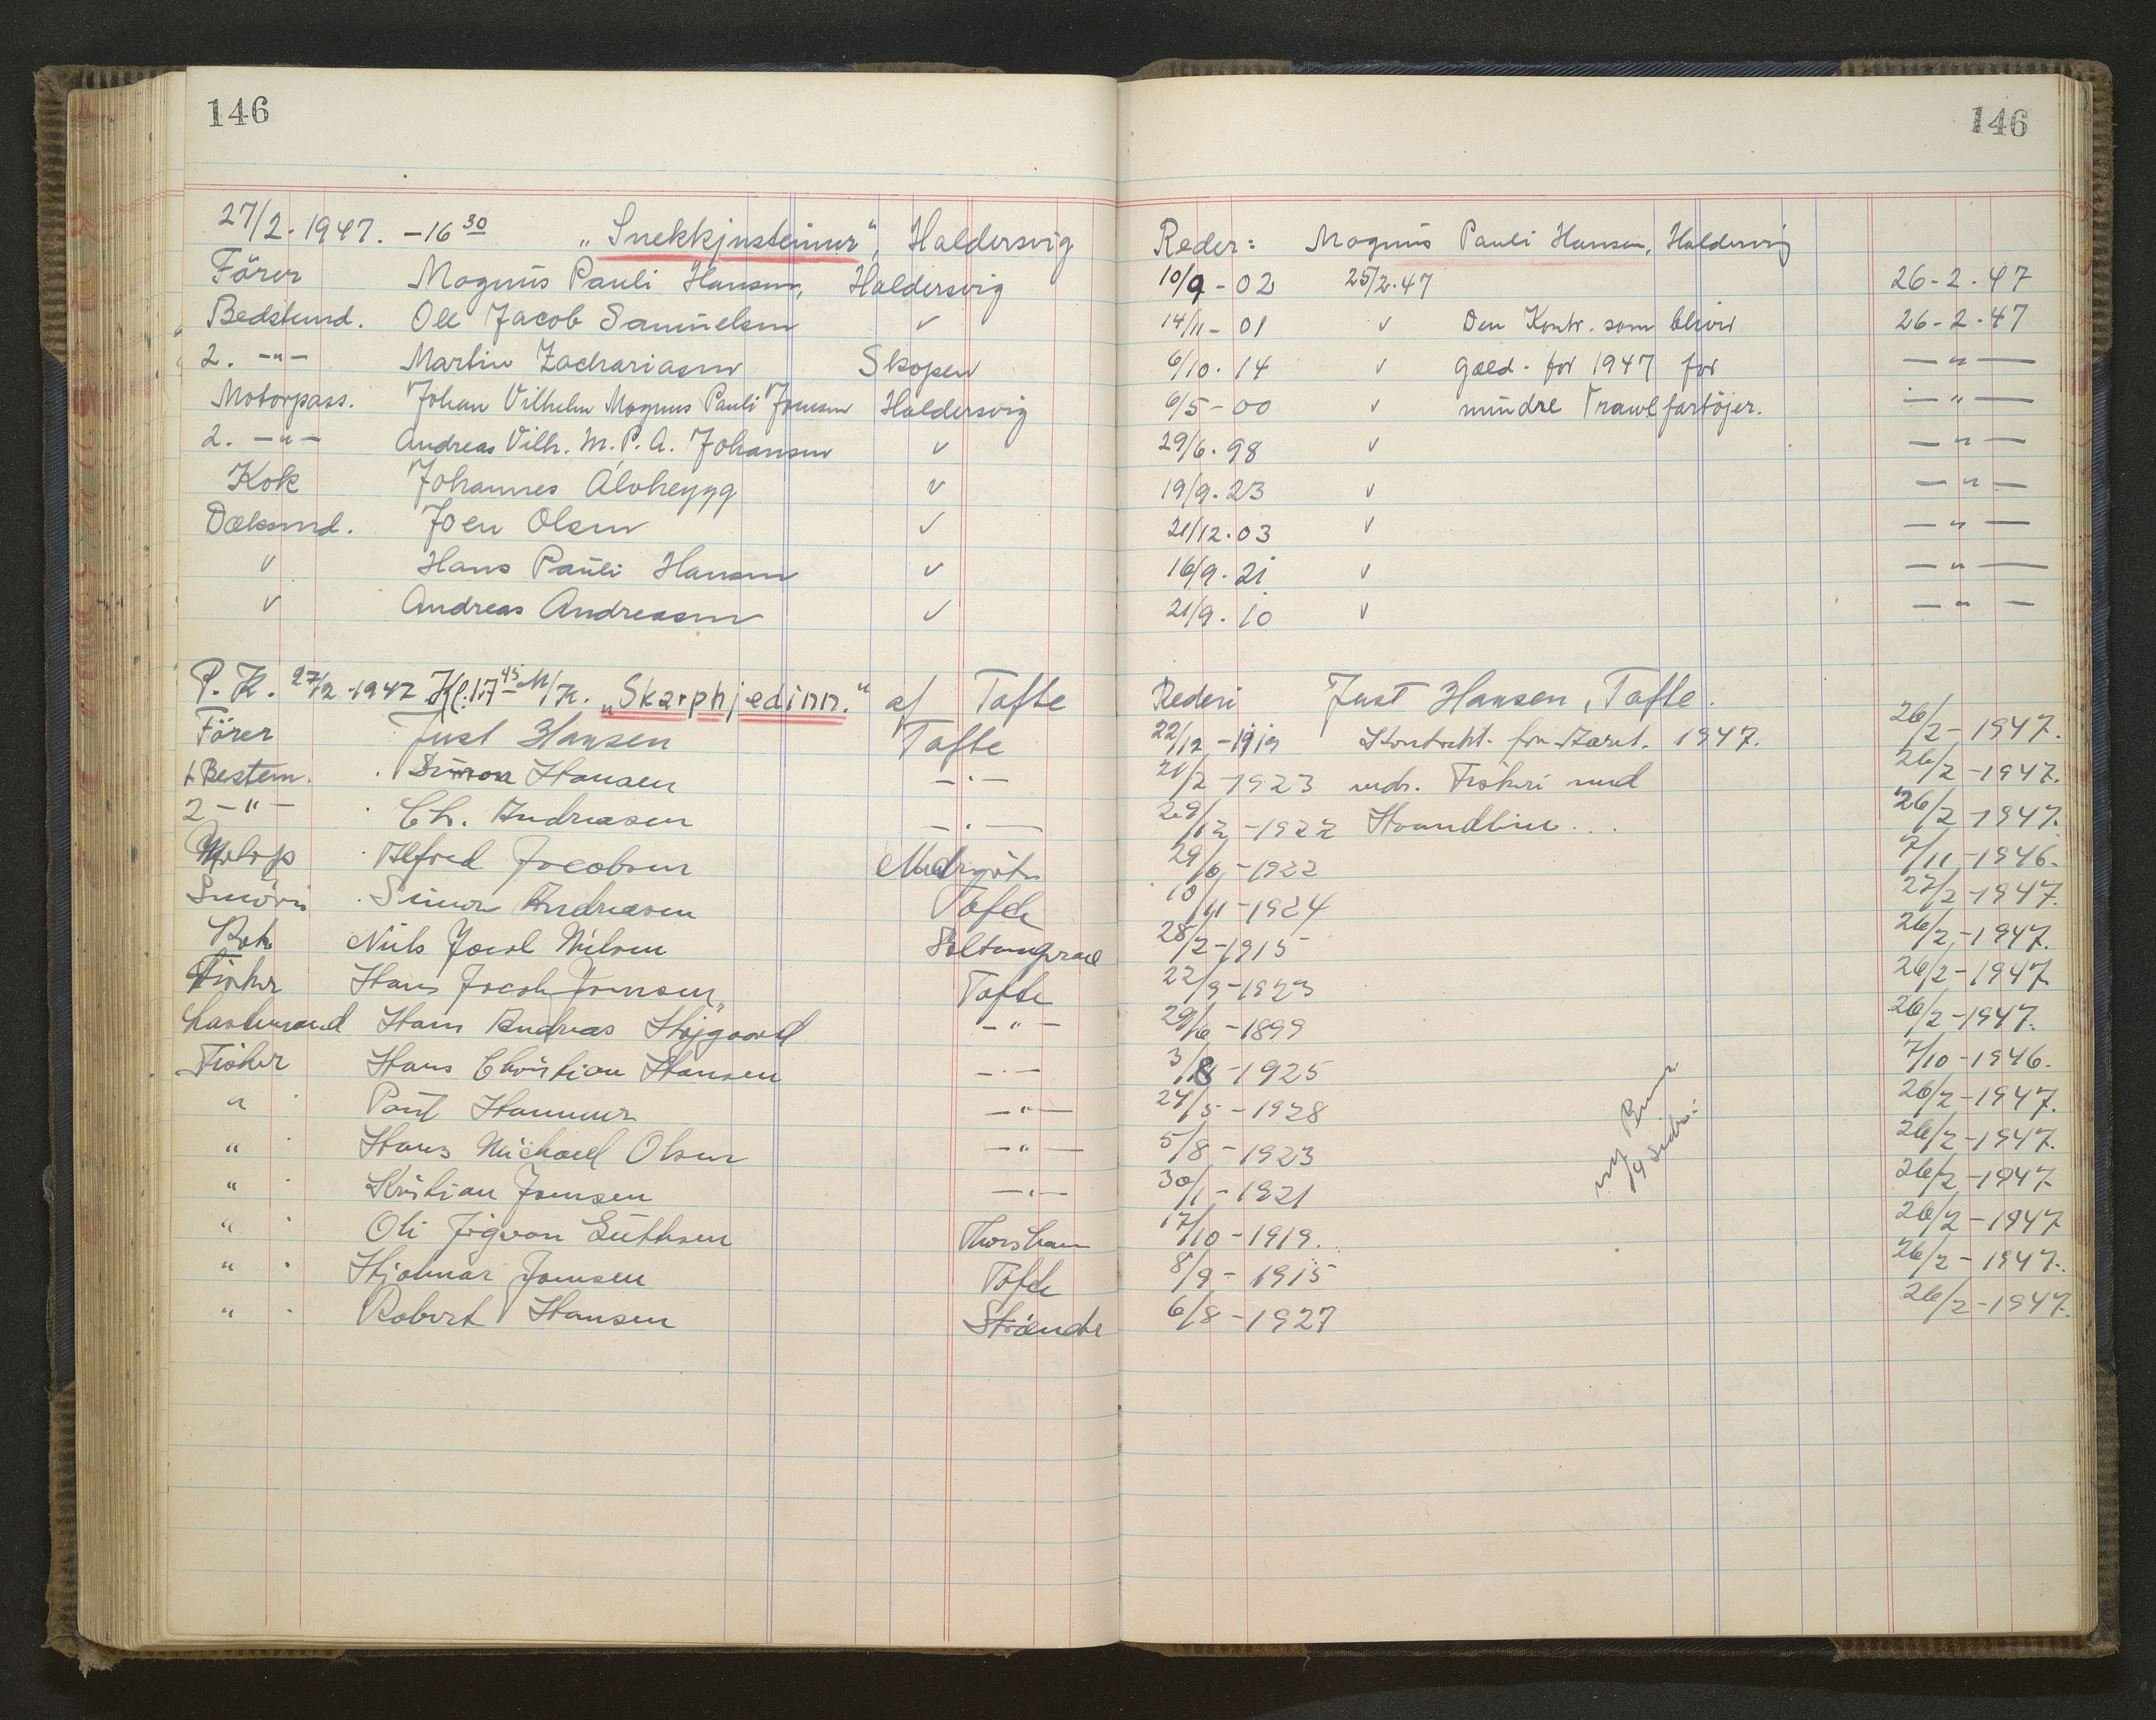 146
146
27/2-1947. -16 30 „Snekkjusteinur", Haldersvig Reder: Magnus Pauli Hansen, Haldersvig
Förer Magnus Pauli Hansen, Haldersvig 10/9-02 25/2.47 26-2-47
Bedstemd. Ole Jacob Samuelsen v 14/11-01 v Den Kontr. som bliver 26-2-47
2. -"- Martin Zachariasen Skopen 6/10.14 v gæld. for 1947 for -"-
Motorpass. Johan Vilhelm Magnus Pauli Joensen Haldersvig 6/5-00 v mindre Trawlfartöjer. -"-
2. -"- Andreas Vilh. M. P. A. Johansen v 29/6.98 v -"-
Kok Johannes Álvheygg v 19/9.23 v -"-
Dæksmd. Joen Olsen v 21/12.03 v -"-
v Hans Pauli Hansen v 16/9.21 v -"-
v Andreas Andreasen v 21/9.10 v -"-
P. K. 27/2-1947 Kl.17 45 M/K. „Skarphjedinn." af Tofte Rederi Just Hansen, Tofte.
Förer Just Hansen Tofte 22/12-1919 Kontrakt for 1947. 26/2-1947.
1 Bestem. Simon Hansen -"- 21/2-1923 vedr. Fiskeri med 26/2-1947.
2 -"- Ch. Andreasen -"- 29/12-1922 Haandline . . 26/2-1947.
Motorp Alfred Jacobsen 29/6-1922 7/11-1946.
Smörer Simon Andreasen Tofte 10/11-1924 27/2-1947.
Kok Niels Joel Nilsen 28/2-1915 26/2-1947.
Fisker Hans Jacob Joensen Tofte 22/9-1923 26/2-1947.
Hans Andreas Højgaard -"- 29/6-1899 26/2-1947.
Fisker Hans Christian Hansen -"- 3/8-1925 7/10-1946.
" Poul Hammer -"- 24/5-1928 26/2-1947.
" Hans Michael Olsen -"- 5/8-1923 26/2-1947.
" Kristian Joensen -"- 30/1-1921 26/2-1947.
" Oli Thorshavn 17/10-1919. 26/2-1947
" Hjalmar Joensen Tofte 8/9-1915 26/2-1947.
" Robert Hansen Strænder 6/8-1927 26/2-1947.